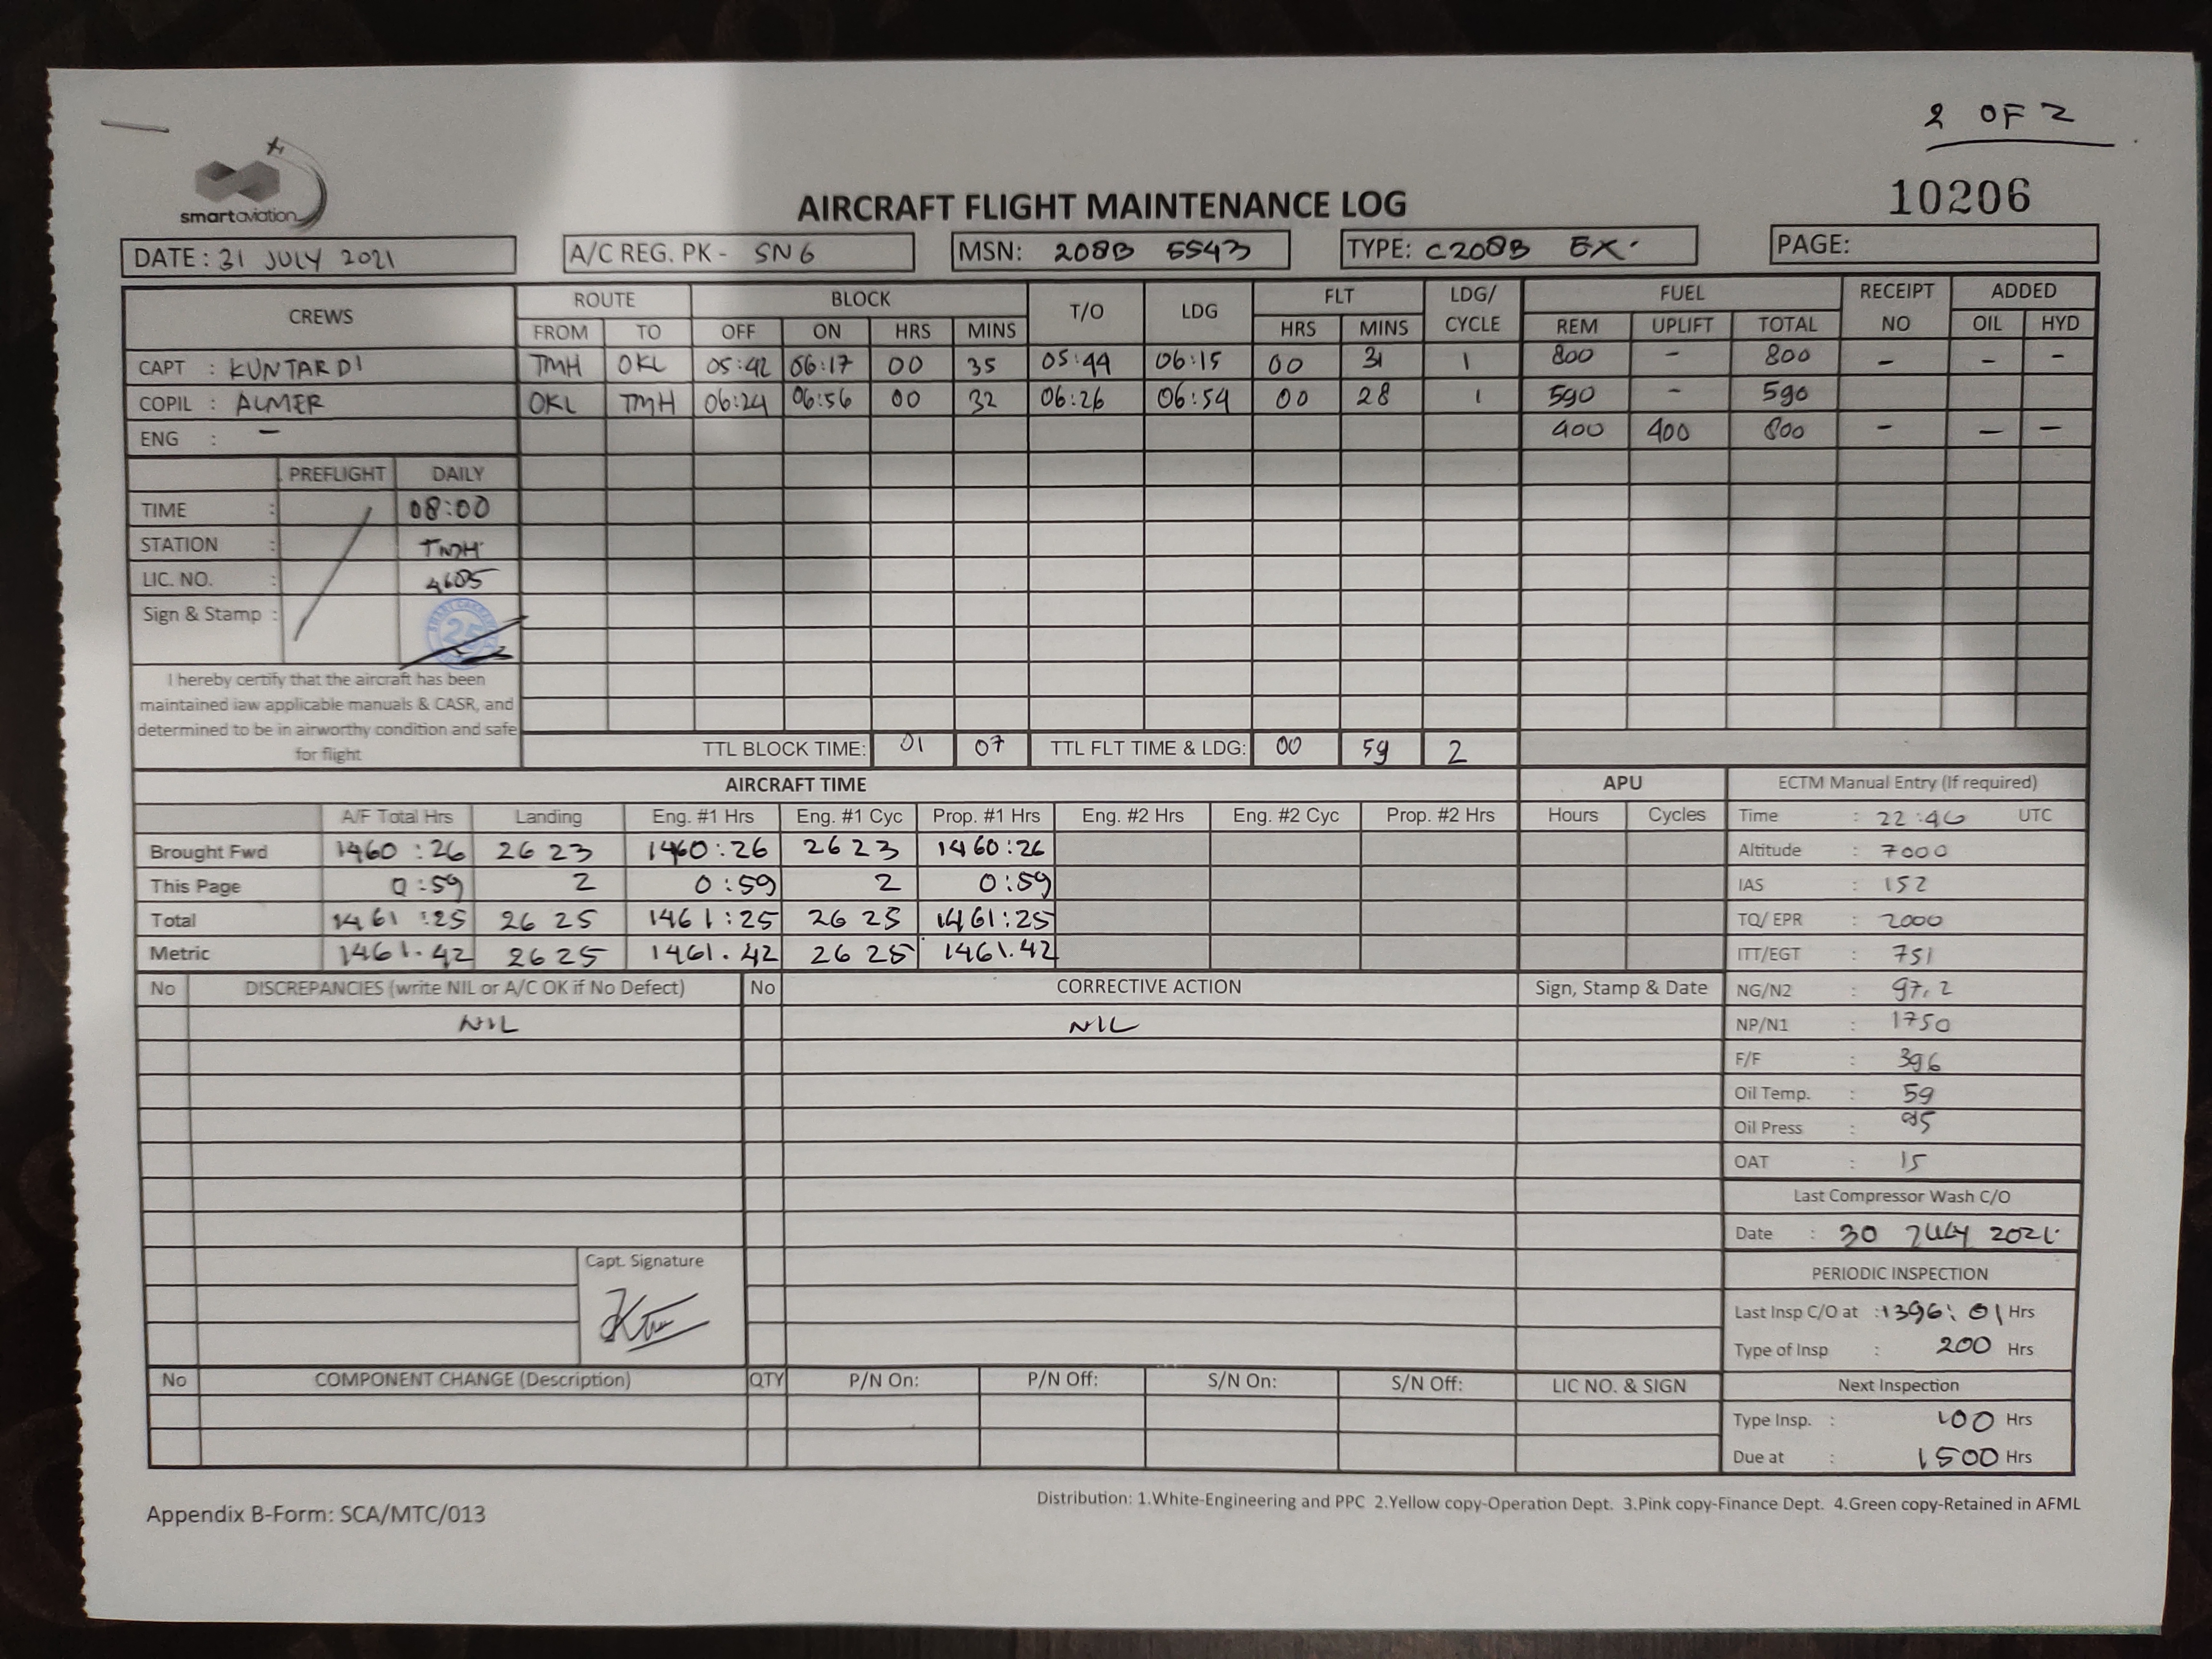 2 OF 2
smartaviation
AIRCRAFT FLIGHT MAINTENANCE LOG
10206
DATE : 31 JULY 2021 A/C REG. PK - SN6 MSN: 208B 5543 TYPE: C208B EX. PAGE:
CREWS ROUTE BLOCK T/O LDG FLT LDG/ CYCLE FUEL RECEIPT NO ADDED
FROM TO OFF ON HRS MINS HRS MINS REM UPLIFT TOTAL OIL HYD
CAPT : KUNTARDI TMH OKL 05:42 06:17 00 35 05:44 06:15 00 31 1 800 - 800 - - -
COPIL : ALMER OKL TMH 06:24 06:56 00 32 06:26 06:54 00 28 1 590 - 590
ENG : - 400 400 800 - - -
PREFLIGHT DAILY
TIME : 08:00
STATION : TMH
LIC. NO. : 4605
Sign & Stamp : 25
I hereby certify that the aircraft has been
maintained iaw applicable manuals & CASR, and
determined to be in airworthy condition and safe
for flight
TTL BLOCK TIME: 01 07 TTL FLT TIME & LDG: 00 59 2
AIRCRAFT TIME APU ECTM Manual Entry (If required)
A/F Total Hrs Landing Eng. #1 Hrs Eng. #1 Cyc Prop. #1 Hrs Eng. #2 Hrs Eng. #2 Cyc Prop. #2 Hrs Hours Cycles Time : 22:46 UTC
Brought Fwd 1460:26 2623 1460:26 2623 1460:26 Altitude : 7000
This Page 0:59 2 0:59 2 0:59 IAS : 152
Total 1461:25 2625 1461:25 2625 1461:25 TQ/ EPR : 2000
Metric 1461.42 2625 1461.42 2625 1461.42 ITT/EGT : 751
No DISCREPANCIES (write NIL or A/C OK if No Defect) No CORRECTIVE ACTION Sign, Stamp & Date NG/N2 : 97.2
NIL NIL NP/N1 : 1750
F/F : 396
Oil Temp. : 59
Oil Press : 95
OAT : 15
Last Compressor Wash C/O
Date : 30 JULY 2021.
Capt. Signature
PERIODIC INSPECTION
Last Insp C/O at : 1396:01 Hrs
Type of Insp : 200 Hrs
No COMPONENT CHANGE (Description) QTY P/N On: P/N Off: S/N On: S/N Off: LIC NO. & SIGN Next Inspection
Type Insp. : 100 Hrs
Due at : 1500 Hrs
Appendix B-Form: SCA/MTC/013
Distribution: 1.White-Engineering and PPC 2.Yellow copy-Operation Dept. 3.Pink copy-Finance Dept. 4.Green copy-Retained in AFML